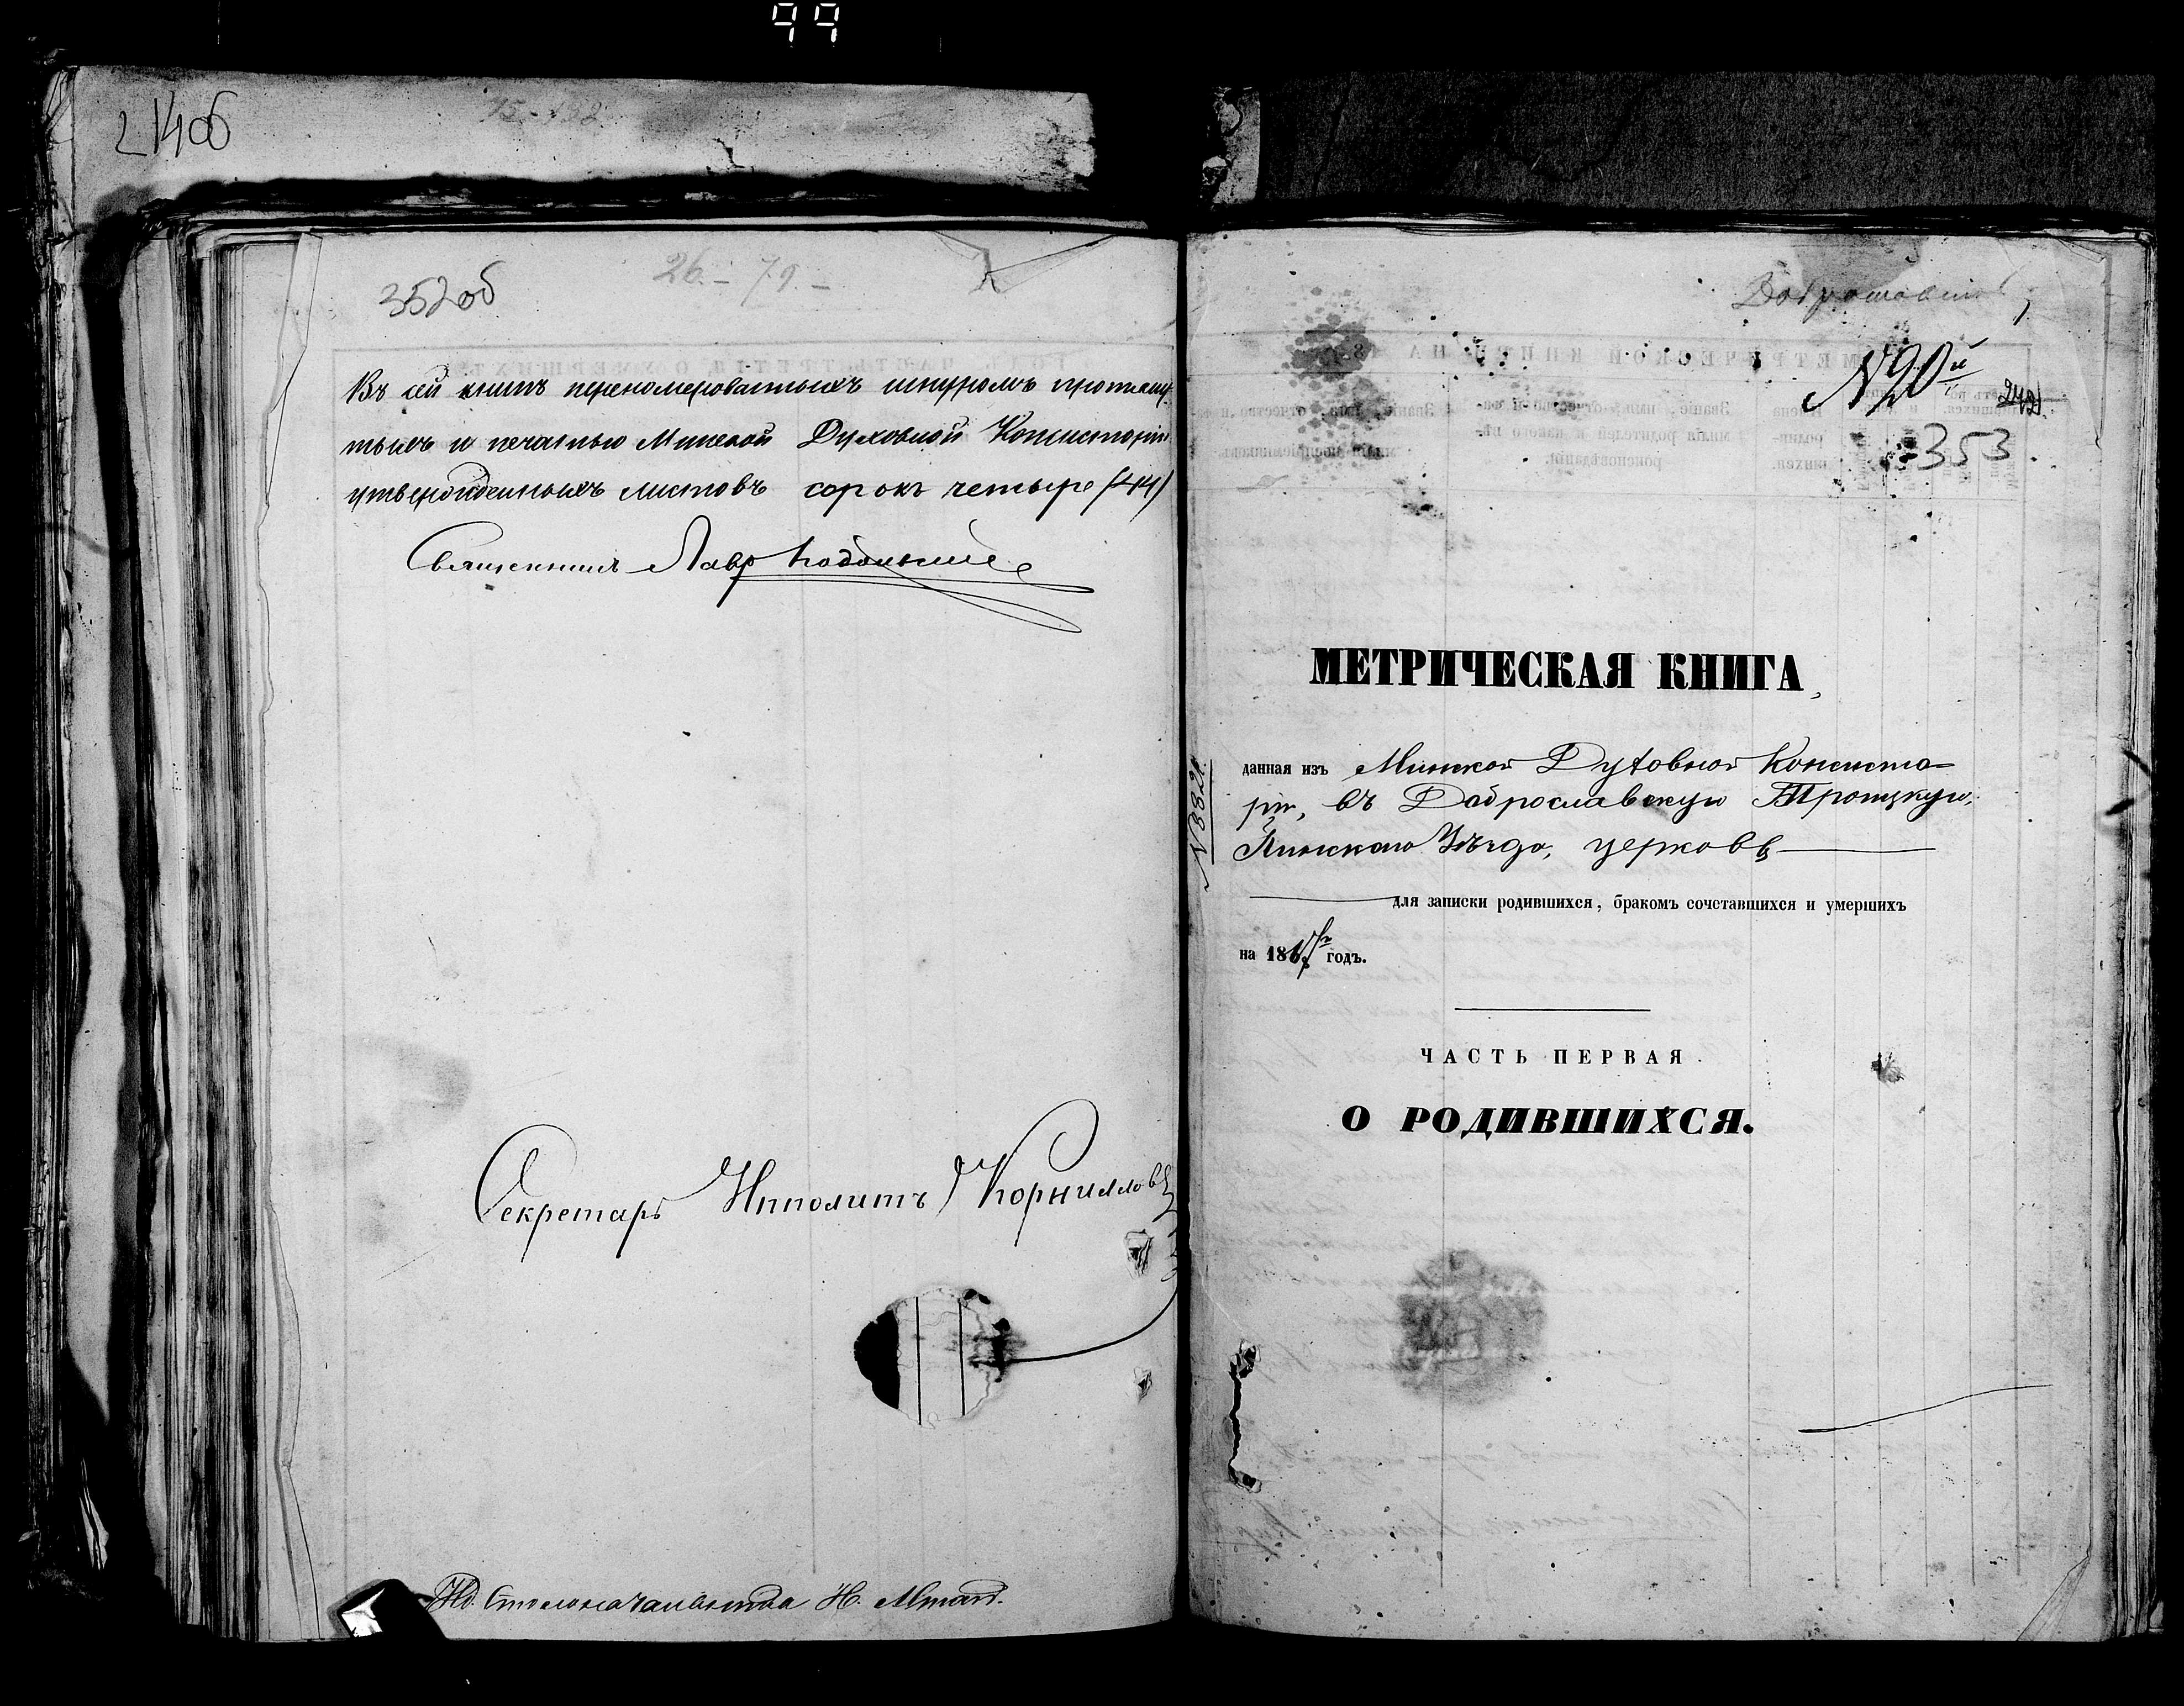 99
214об
352об
26.-79.-
Въ сей книгѣ перенумерованныхъ шнуромъ протяну-
тыхъ и печатью Минской Духовной Консисторіи
утвержденныхъ листовъ сорокъ четыре (44)
Священникъ Лавръ
Секретарь Ипполитъ Корниловъ
Ид. Столоначальника Н.
Доброславской
N 20й
242
353
МЕТРИЧЕСКАЯ КНИГА,
N 8821.
данная изъ Минской Духовной Консисто-
ріи, въ Доброславскую Троицкую,
Пинскаго Уѣзда, церковь
для записки родившихся, бракомъ сочетавшихся и умершихъ
на 186 годъ.
ЧАСТЬ ПЕРВАЯ.
О РОДИВШИХСЯ.